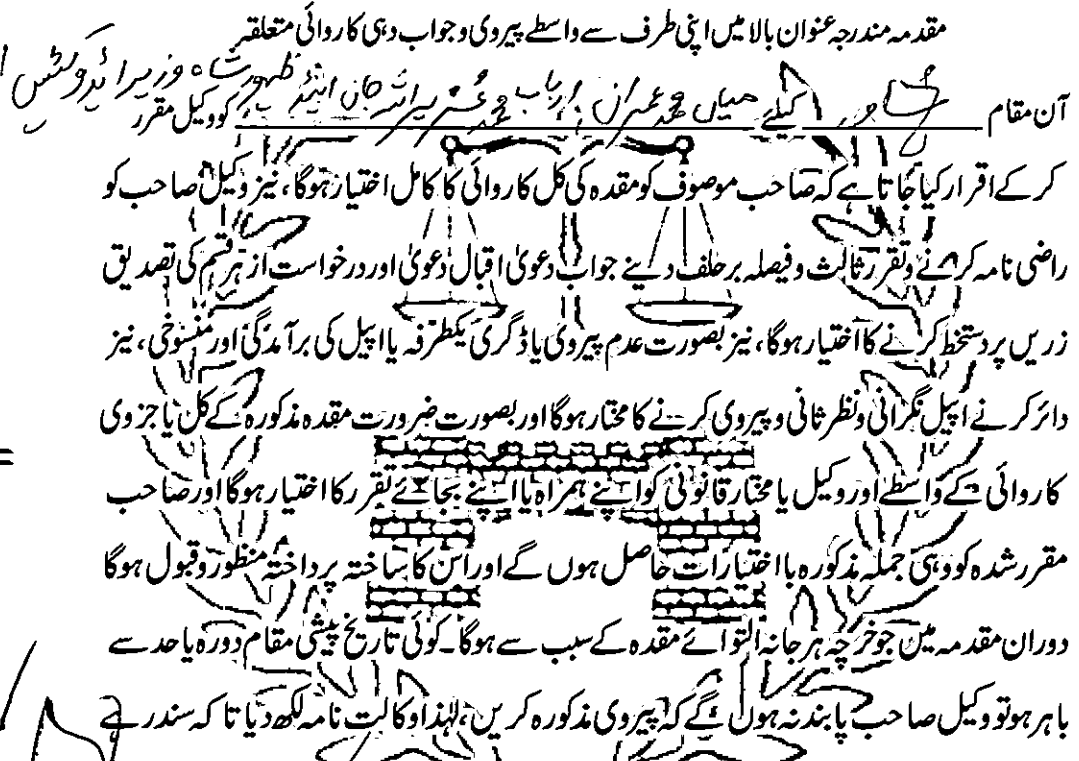 مقدمہ مندرجہ عنوان بالا میں اپنی طرف سے واسطے پیروی و جواب دہی کاروائی متعلقہ
آن مقام پشاور کیلئے میاں محمد عمران ارباب محمد عزیر اینڈ ظہور شاہ وزیر ایڈوکیٹس کو وکیل مقرر
کر کے اقرار کیا جاتا ہے کہ صاحب موصوف کو مقدہ کی کل کاروائی کا کامل اختیار ہوگا، نیز وکیل صاحب کو
راضی نامہ کرنے وتقرر ثالث و فیصلہ بر حلف دینے جواب دعویٰ اقبال دعویٰ اور درخواست از ہر قسم کی تصدیق
زریں پر دستخط کرنے کا اختیار ہوگا، نیز بصورت عدم پیروی یا ڈگری یکطرفہ یا اپیل کی برآمدگی اور منسوخی، نیز
دائر کرنے اپیل نگرانی ونظر ثانی و پیروی کرنے کا مختار ہوگا اور بصورت ضرورت مقدہ مذکورہ کے کل یا جزوی
کاروائی کے واسطے اور وکیل یا مختار قانونی کو اپنے ہمراہ یا اپنے بجائے تقرر کا اختیار ہوگا اور صاحب
مقرر شدہ کو وہی جملہ مذکورہ با اختیارات حاصل ہوں گے اور اس کا ساختہ پرداختہ منظور وقبول ہوگا
دوران مقدمہ مین جو خرچہ ہرجانہ التوائے مقدہ کے سبب سے ہوگا۔ کوئی تاریخ پیشی مقام دورہ یا حد سے
باہر ہو تو وکیل صاحب پابند نہ ہوں گے کہ پیروی مذکورہ کریں، لہٰذا وکالت نامہ لکھ دیا تا کہ سند رہے